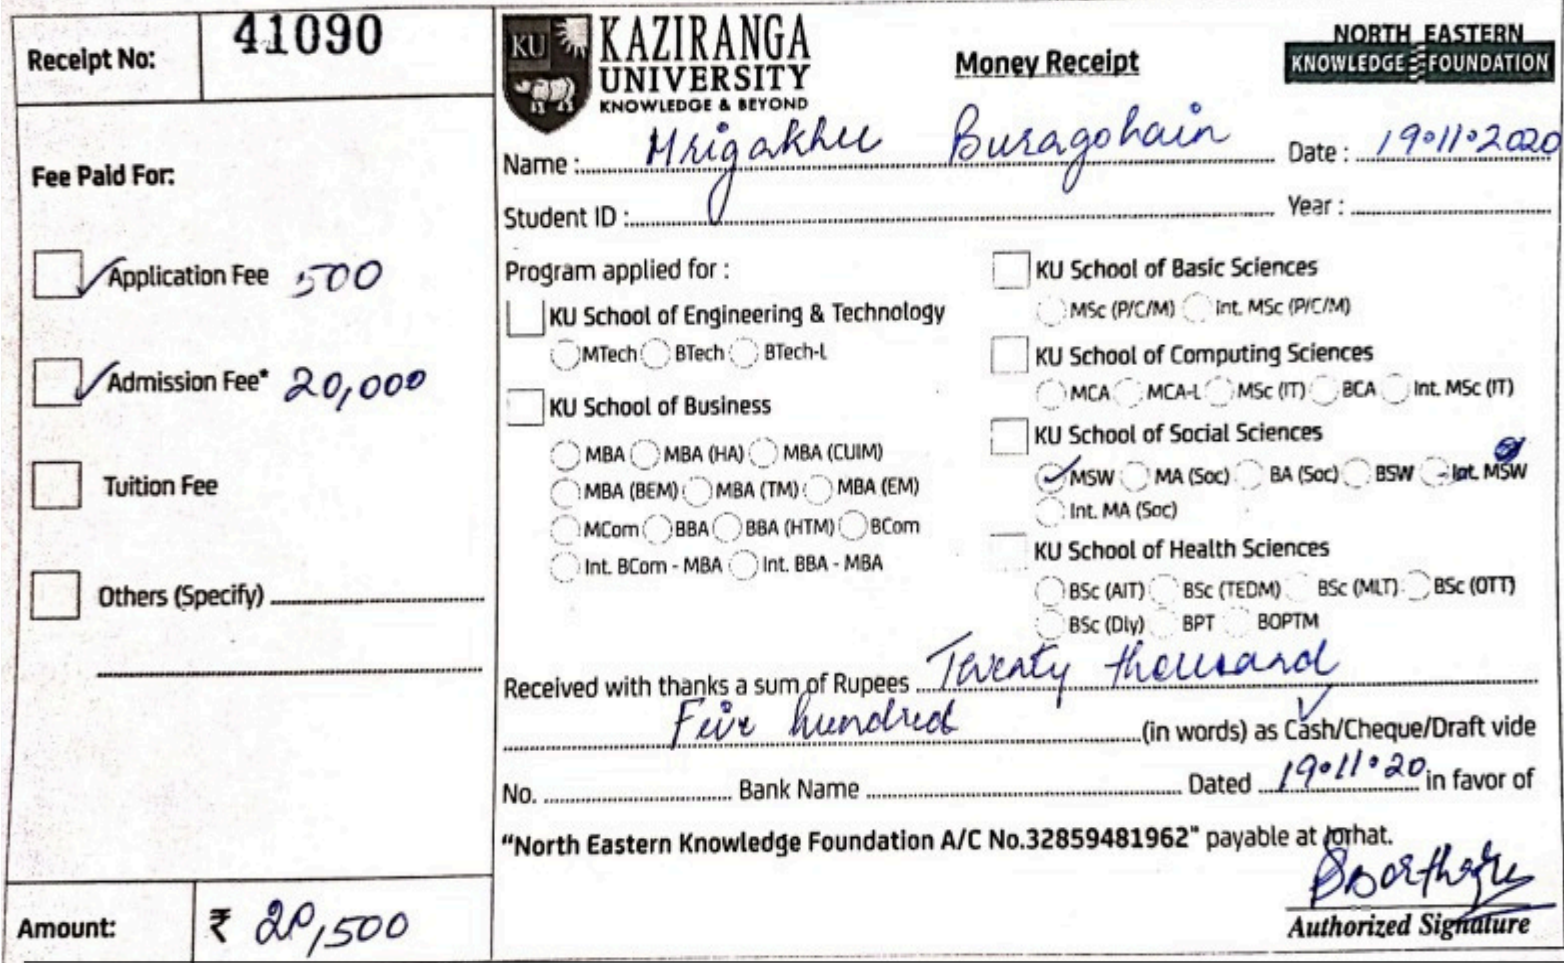 Receipt No: 41090
Fee Paid For:
Application Fee 500
Admission Fee* 20,000
Tuition Fee
Others (Specify)
Amount: ₹ 20,500
KU
KAZIRANGA
UNIVERSITY
KNOWLEDGE & BEYOND
Money Receipt
NORTH EASTERN
KNOWLEDGE FOUNDATION
Name : Mrigakhee Buragohain Date : 19.11.2020
Student ID : Year :
Program applied for :
KU School of Engineering & Technology
MTech BTech BTech-L
KU School of Business
MBA MBA (HA) MBA (CUIM)
MBA (BEM) MBA (TM) MBA (EM)
MCom BBA BBA (HTM) BCom
Int. BCom - MBA Int. BBA - MBA
KU School of Basic Sciences
MSc (P/C/M) Int. MSc (P/C/M)
KU School of Computing Sciences
MCA MCA-L MSc (IT) BCA Int. MSc (IT)
KU School of Social Sciences
MSW MA (Soc) BA (Soc) BSW Int. MSW
Int. MA (Soc)
KU School of Health Sciences
BSc (AIT) BSc (TEDM) BSc (MLT) BSc (OTT)
BSc (Dly) BPT BOPTM
Received with thanks a sum of Rupees Twenty thousand
Five hundred (in words) as Cash/Cheque/Draft vide
No. Bank Name Dated 19.11.20 in favor of
"North Eastern Knowledge Foundation A/C No.32859481962" payable at Jorhat.
Authorized Signature